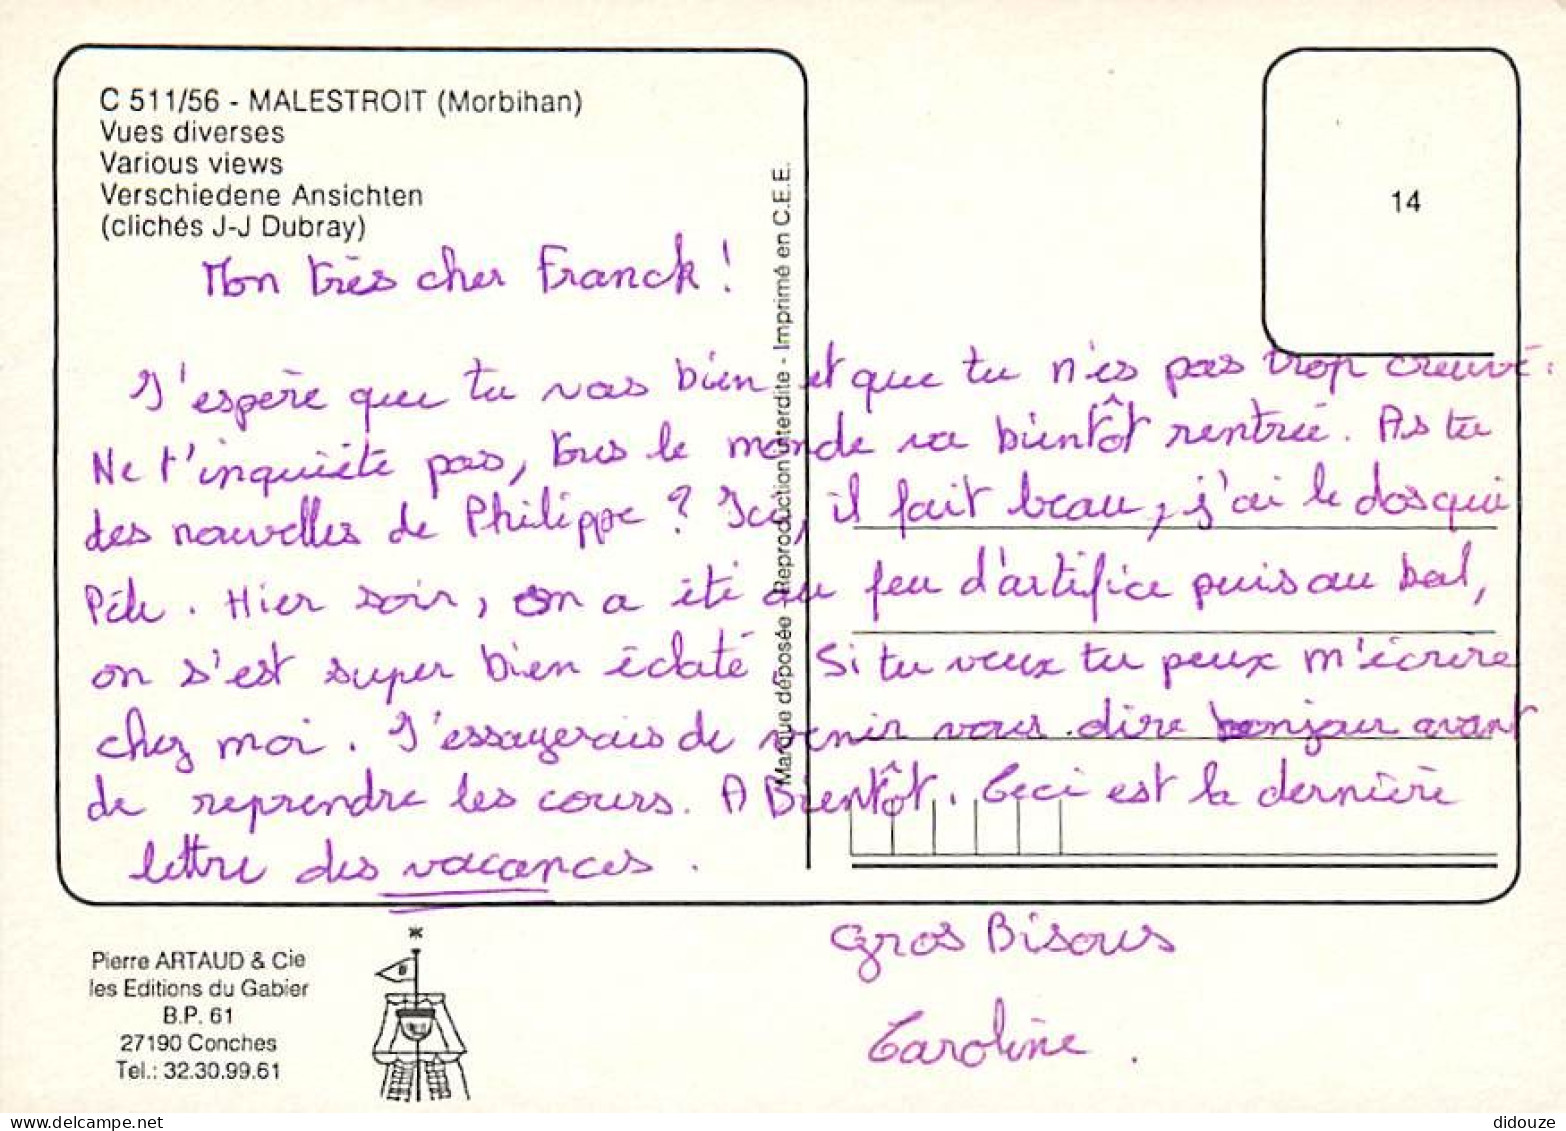 C 511/56 - MALESTROIT (Morbihan)
Vues diverses
Various views
Verschiedene Ansichten
(clichés J-J Dubray)
14
Marque déposée - Reproduction interdite - Imprimé en C.E.E.
Mon très cher Franck !
J'espère que tu vas bien et que tu n'es pas trop creuvé.
Ne t'inquiète pas, tous le monde va bientôt rentrée. As tu
des nouvelles de Philippe ? Ici, il fait beau, j'ai le dos qui
Péle. Hier soir, on a été au feu d'artifice puis au bal,
on s'est super bien éclaté. Si tu veux tu peux m'écrire
chez moi. J'essayerais de venir vous dire bonjour avant
de reprendre les cours. A Bientôt. Ceci est la dernière
lettre des vacances.
Gros Bisous
Caroline.
Pierre ARTAUD & Cie
les Editions du Gabier
B.P. 61
27190 Conches
Tel.: 32.30.99.61
www.delcampe.net
didouze